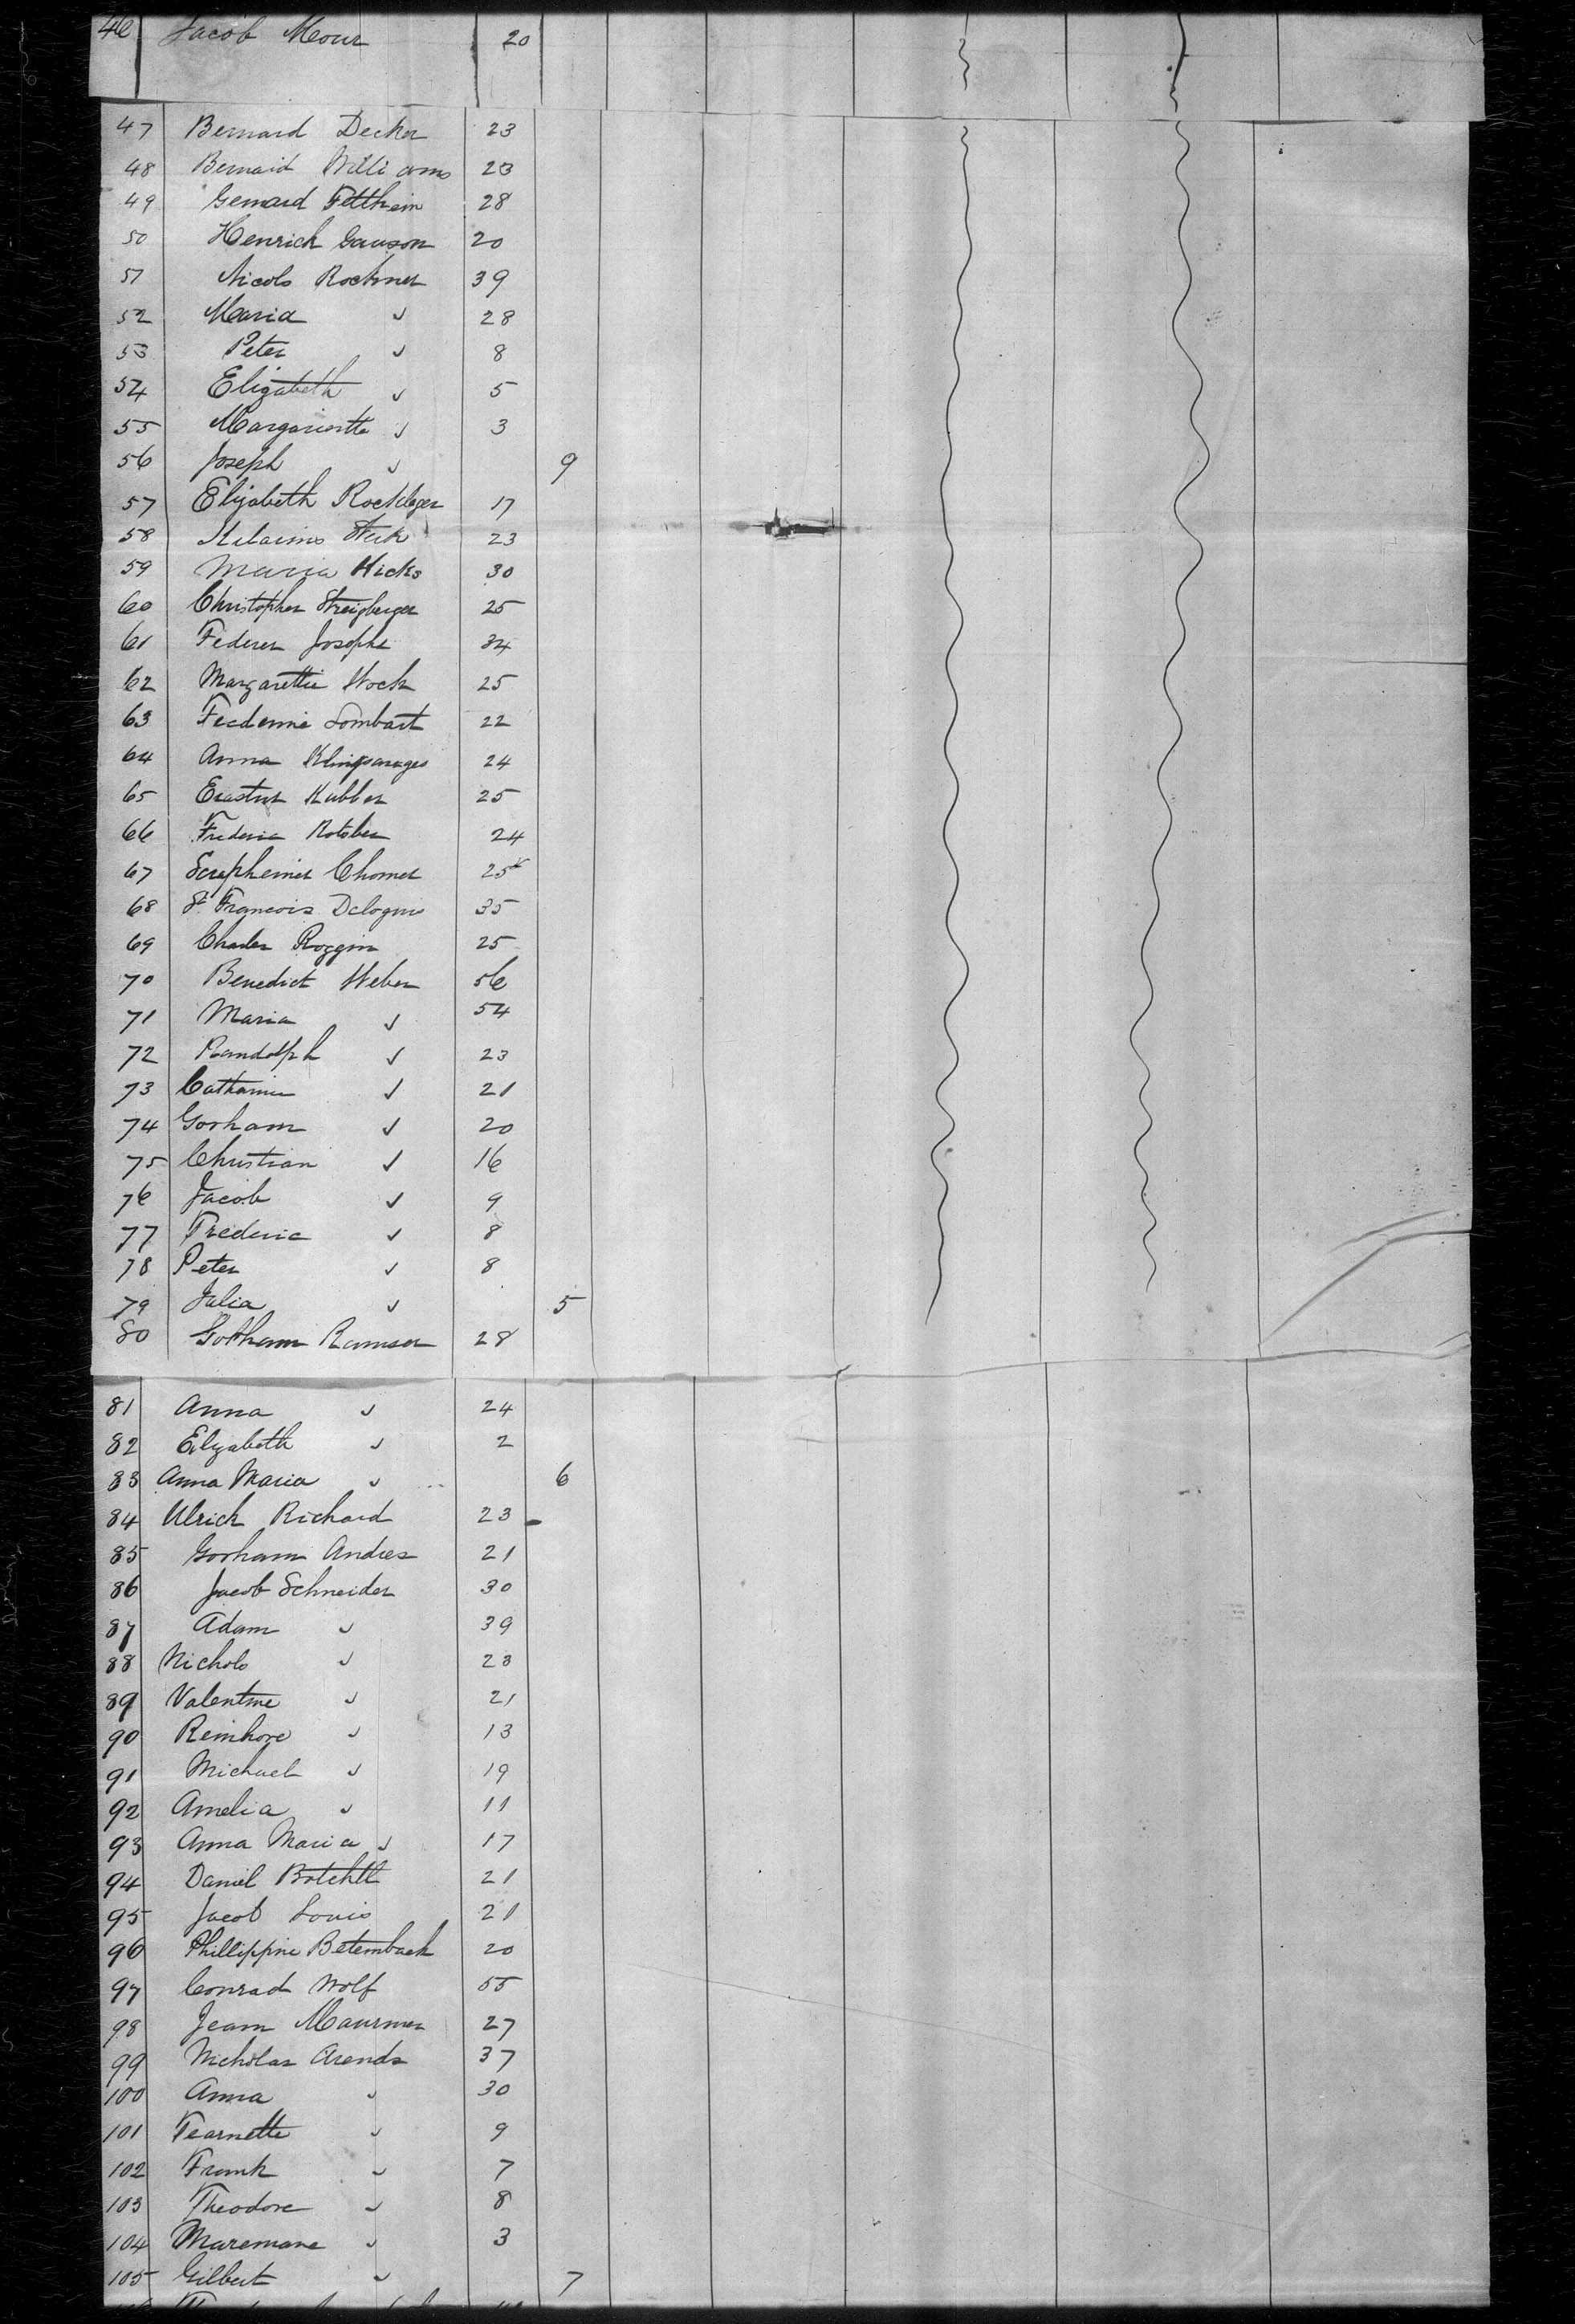 46 Jacob Mour 20
47 Bernard Decker 23
48 Bernard Williams 23
49 Gernard Feltheim 28
50 Henrich Gauson 20
51 Nicols Rochner 39
52 Maria " 28
53 Peter " 8
54 Elizabeth " 5
55 Margarietta " 3
56 Joseph " 9
57 Elizabeth 17
58 23
59 Maria Hicks 30
60 Christopher Streigberger 25
61 Federer Josephe 34
62 Margarettie Stock 25
63 Lombart 22
64 Anna 24
65 Erastus Kubber 25
66 Frederic 24
67 Chomer 25
68 St Francois 35
69 Charles Roggin 25
70 Benedict Weber 56
71 Maria " 54
72 Randolph " 23
73 Catharine " 21
74 Gorham " 20
75 Christian " 16
76 Jacob " 9
77 Frederic " 8
78 Peter " 8
79 Julia " 5
80 Gotham Ramser 28
81 Anna " 24
82 Elizabeth " 2
83 Anna Maria " 6
84 Ulrich Richard 23
85 Gorham Andres 21
86 Jacob Schneider 30
87 Adam " 39
88 Nichols " 23
89 Valentine " 21
90 Reinhore " 13
91 Michael " 19
92 Amelia " 11
93 Anna Maria " 17
94 Daniel 21
95 Jacob Louis 21
96 Phillippine Betemback 20
97 Conrad Wolf 55
98 Jeam Maurmer 27
99 Nicholas Arends 37
100 Anna " 30
101 Fearnette " 9
102 Frank " 7
103 Theodore " 8
104 Maremane " 3
105 Gilbert " 7